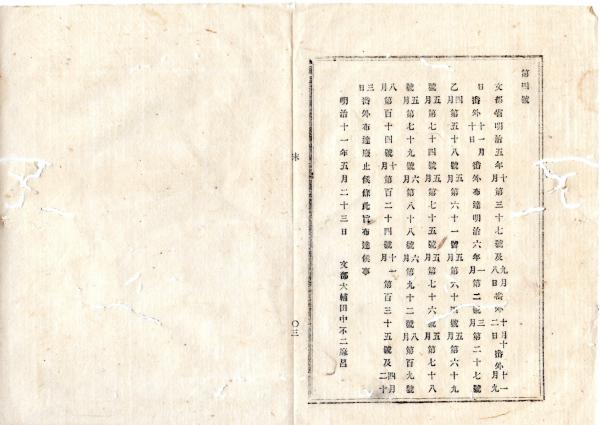 第四號
文部省明治五年十月第三十七號及九月八日番外十月十二日番外十一月九
日番外十一月十日番外布達明治六年一月第二號三月第二十七號
乙四月第五十八號五月第六十一號五月第六十四號五月第六十九
號五月第七十四號五月第七十五號五月第七十六號五月第七十八
號五月第七十九號六月第八十八號六月第九十二號八月第百九號
八月第百十四號十月第百二十四號十一月第百三十五號及四月二十
三日番外布達廢止候條此旨布達候事
明治十一年五月二十三日 文部大輔田中不二麻呂
〇三